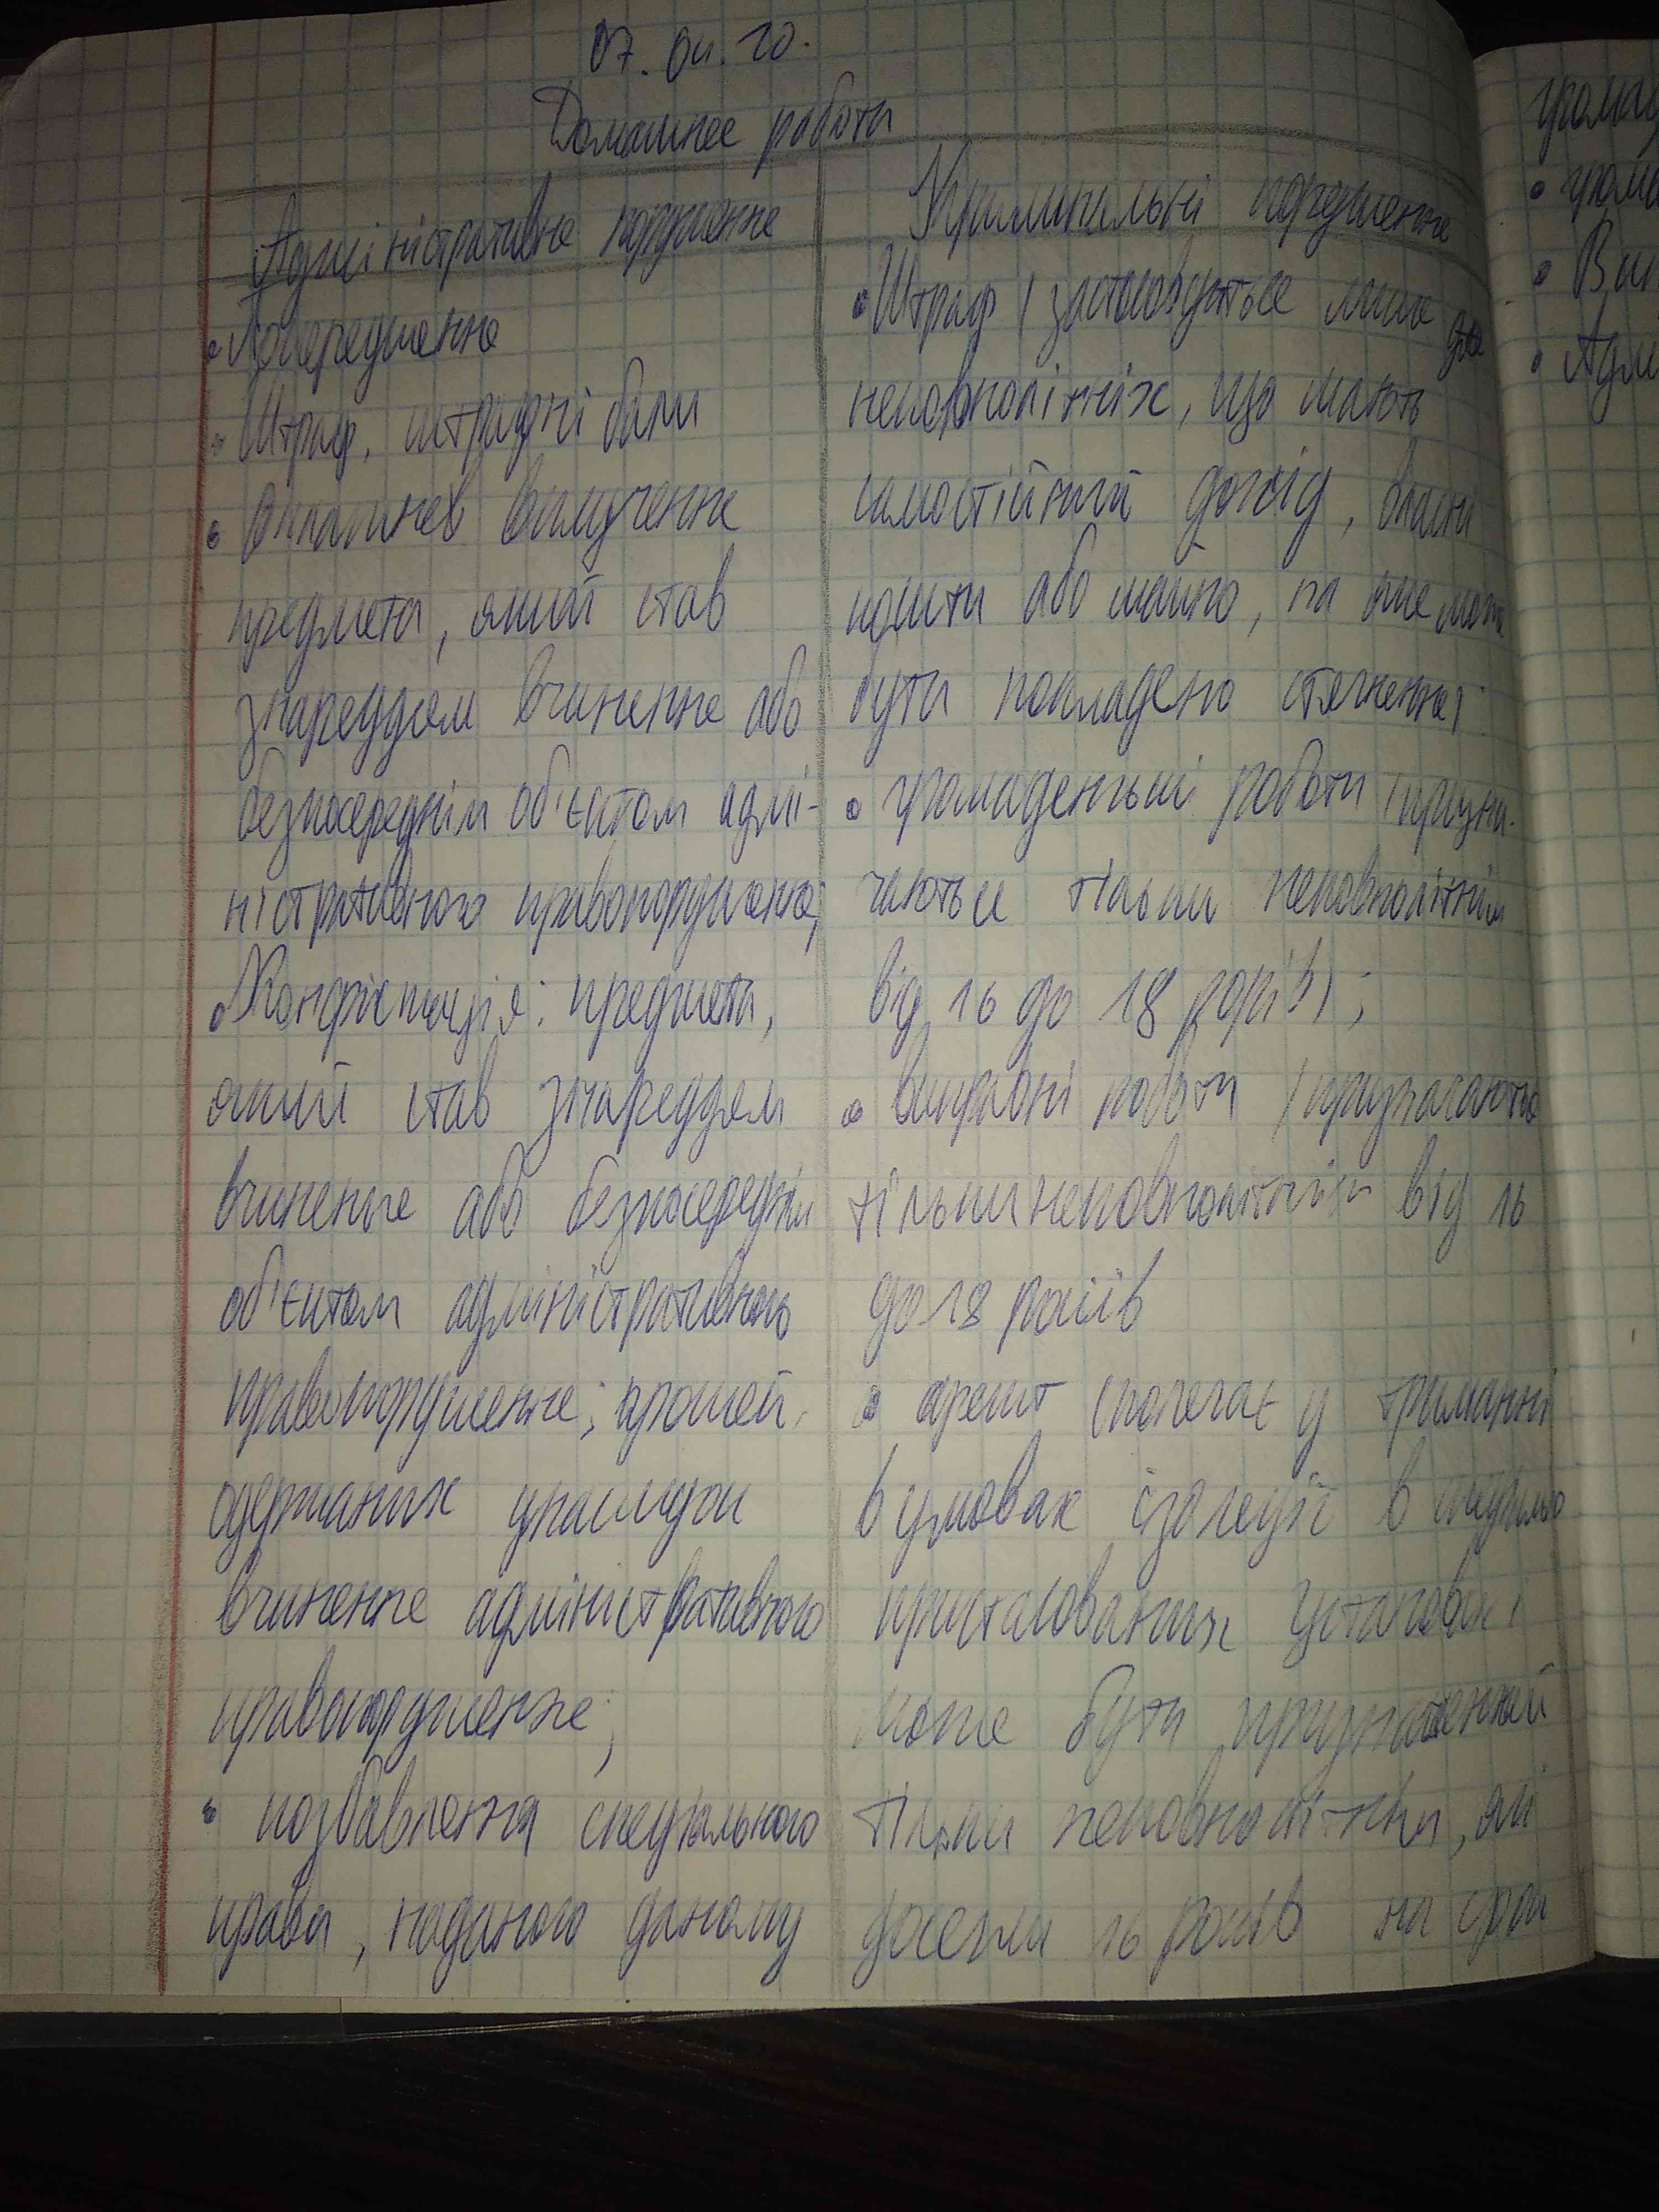 07.04.20.
Домашнее работа
Адміністративне порушення
• Попередження
• Штраф, штрафні бали
• Оплатнев вилучення
предмета, який став
знареддям вчинення або
безпосереднім об'єктом адмі-
ністративного правопорушення;
• Конфіскація: предмета,
який став знареддям
вчинення або безпосереднім
об'єктом адміністративного
правопорушення; грошей,
одержаних унаслідок
вчинення адміністративного
правопорушення;
• позбавлення спеціального
права, наданого даному
Кримінальні порушення
• Штраф (застосовується лише до
неповнолітніх, що мають
самостійний дохід, власні
кошти або майно, на яке може
бути покладено стягнення)
• громаденські роботи (призна-
чаються тільки неповнолітнім
від 16 до 18 років);
• виправні роботи (призначають
тільки неповнолітнім від 16
до 18 років
• арешт (полягає у триманні
в умовах ізоляції в спеціально
пристосованих установах і
може бути призначений
тільки неповнолітнім, які
досягли 16 років на строк
• Вип
• Адм